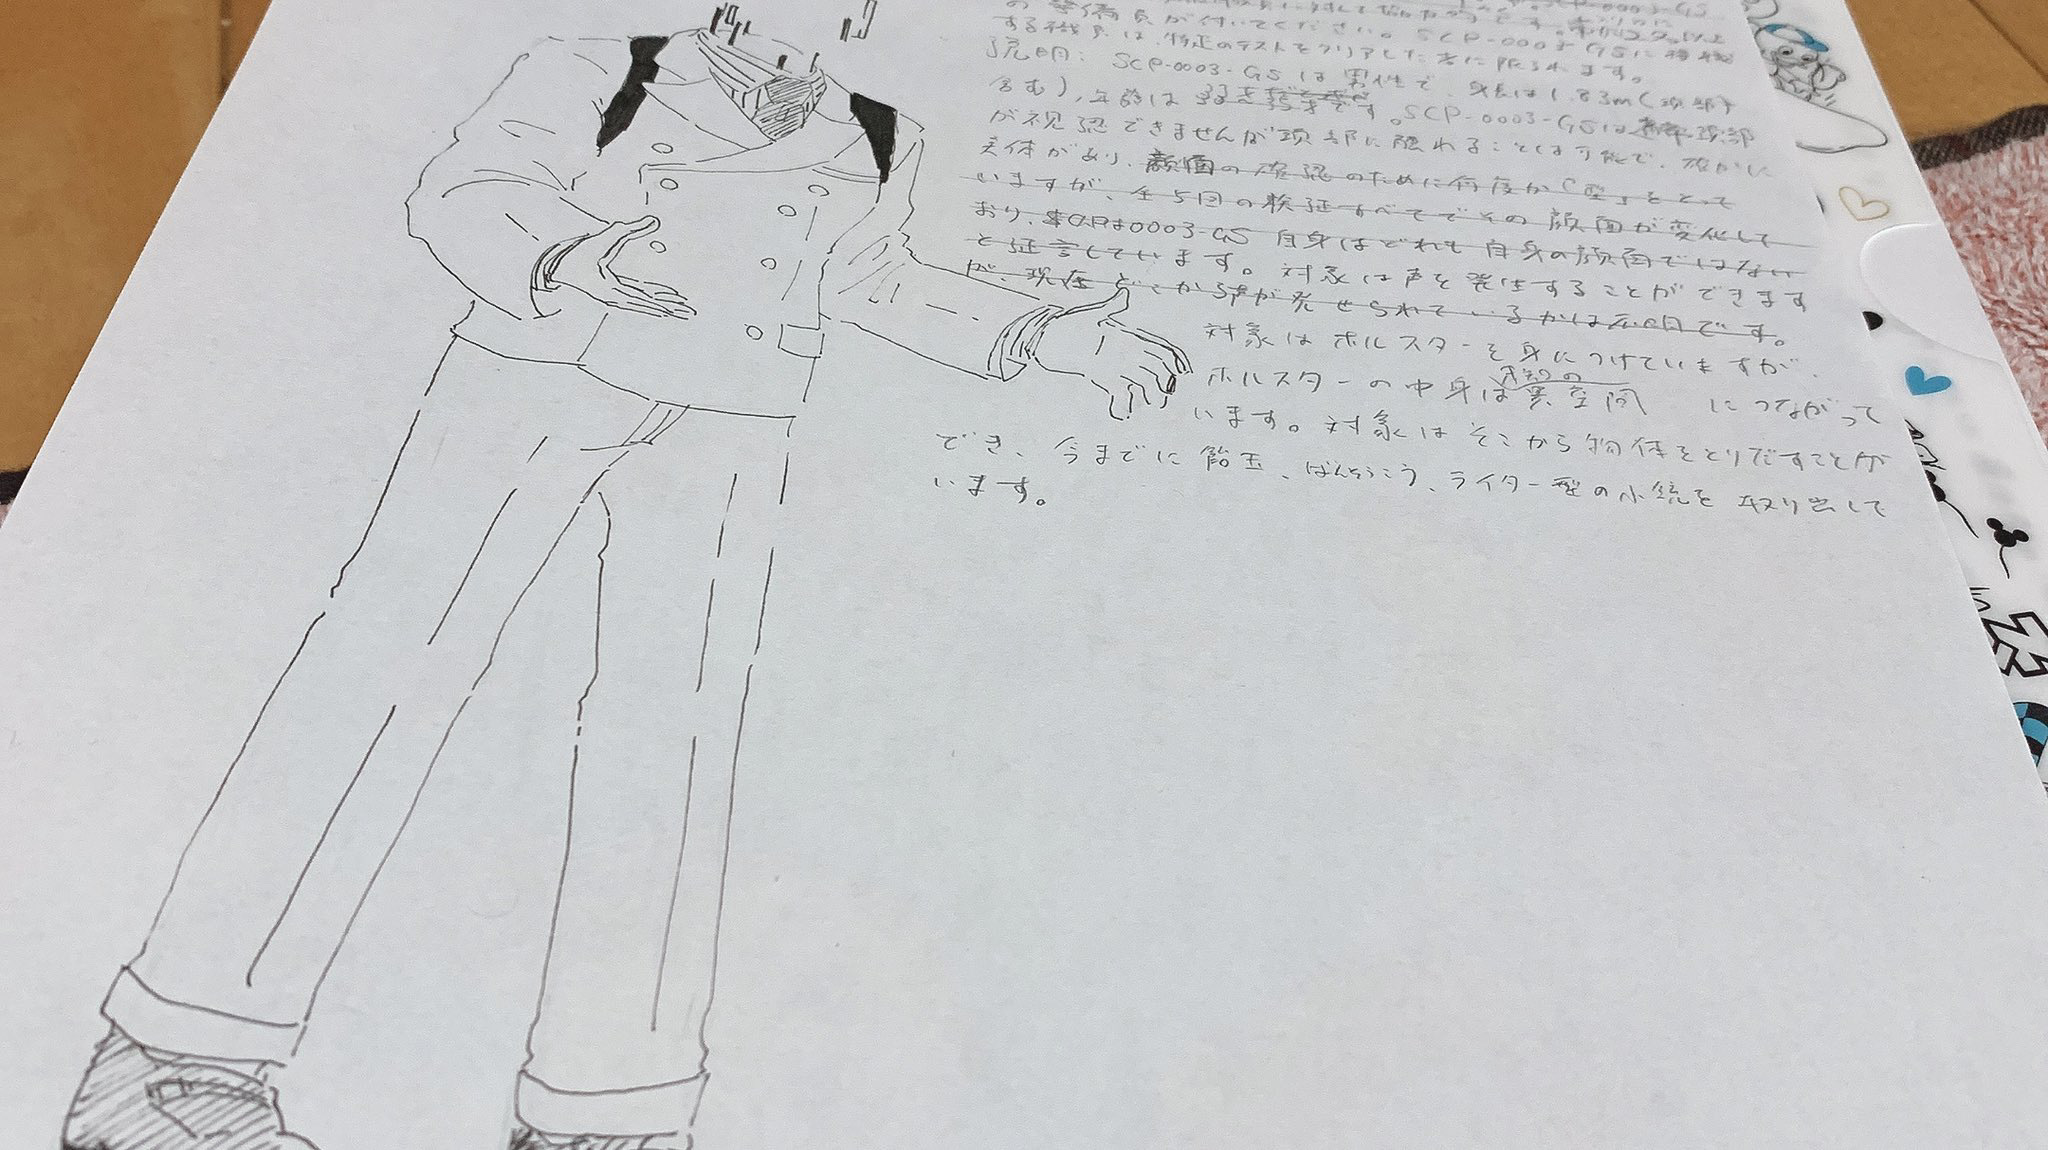 の整備員が付いてください。SCP-0003-GSに接触
する職員は、特定のテストをクリアした者に限られます。
説明: SCP-0003-GSは男性で、身長は1.83m(頭部
含む)、年齢は です。SCP-0003-GSは 頭部
が視認できませんが頭部に触れることは可能で、確かに
実体があり、顔面の確認のために何度か「型」をとって
いますが、全5回の検証すべてでその顔面が変化して
おり、SCP-0003-GS自身はどれも自身の顔面ではない
と証言しています。対象は声を発生することができます
が、現在どこから声が発せられているかは不明です。
対象はホルスターを身につけていますが、
ホルスターの中身は未知の異空間 につながって
います。対象はそこから物体をとりだすことが
でき、今までに飴玉、ばんそうこう、ライター型の小銃を取り出して
います。